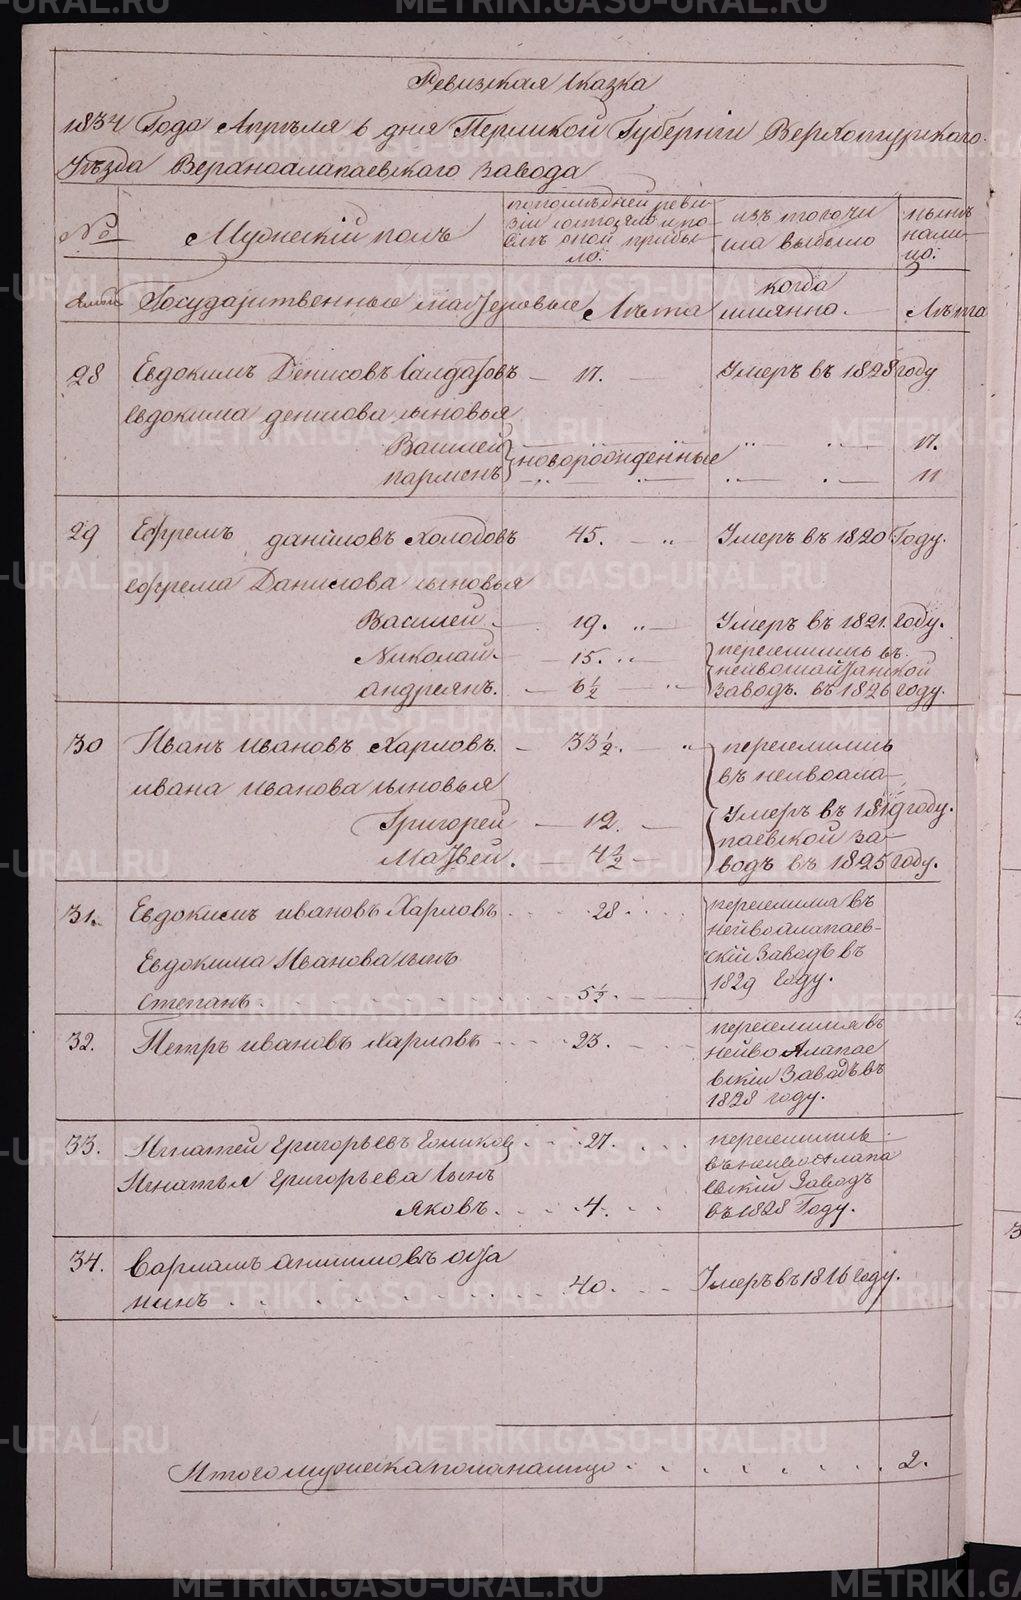 Ревизская сказка
1834 Года Апрѣля 6 дня Пермской Губерніи Верхотурскаго
Уѣзда Верхноалапаевского завода
№ Мужескій полъ
по последней реви-
зіи состояло и по-
слѣ оной прибы-
ло.
изъ того чи
сла выбыло
нынѣ
нали-
цо.
Государственные мастеровые Лѣта
когда
имянно. Лѣта
28 Евдокимъ Денисовъ Салдатовъ 17. Умеръ въ 1828 году
Евдокима денисова сыновья
Василей новорожденные 17.
парменъ 11
29 Ефремъ даниловъ Холодовъ 45. Умеръ въ 1820 Году.
ефрема Данилова сыновья
Василей 19. Умеръ въ 1821. году.
Николай 15. переселились въ
нейвошайтанской
андреянъ. 6½ заводъ. въ 1826 году.
30 Иванъ ивановъ Харловъ. 33½. переселились
въ нейвоала-
ивана иванова сыновья
Григорей 12. Умеръ въ 1819 году.
паевской за-
Матвей. 4½ водъ въ 1825 году.
31. Евдокимъ ивановъ Харловъ 28. переселился въ
нейвоалапаев-
Евдокима Иванова сынъ скій Заводъ въ
1829 году.
степанъ 5½.
32. Петръ ивановъ Харловъ 23. переселился въ
нейво Алапае
вскій Заводъ въ
1828 году.
33. Игнатей григорьевъ 27. переселились
въ нейво Алапа
Игнатья григорьева сынъ евскій Заводъ
Яковъ. 4. въ 1828 Году.
34. Варламъ анисимовъ оста
нинъ 40. Умеръ въ 1816 году.
Итого мужеска пола налицо 2.
METRIKI.GASO-URAL.RU